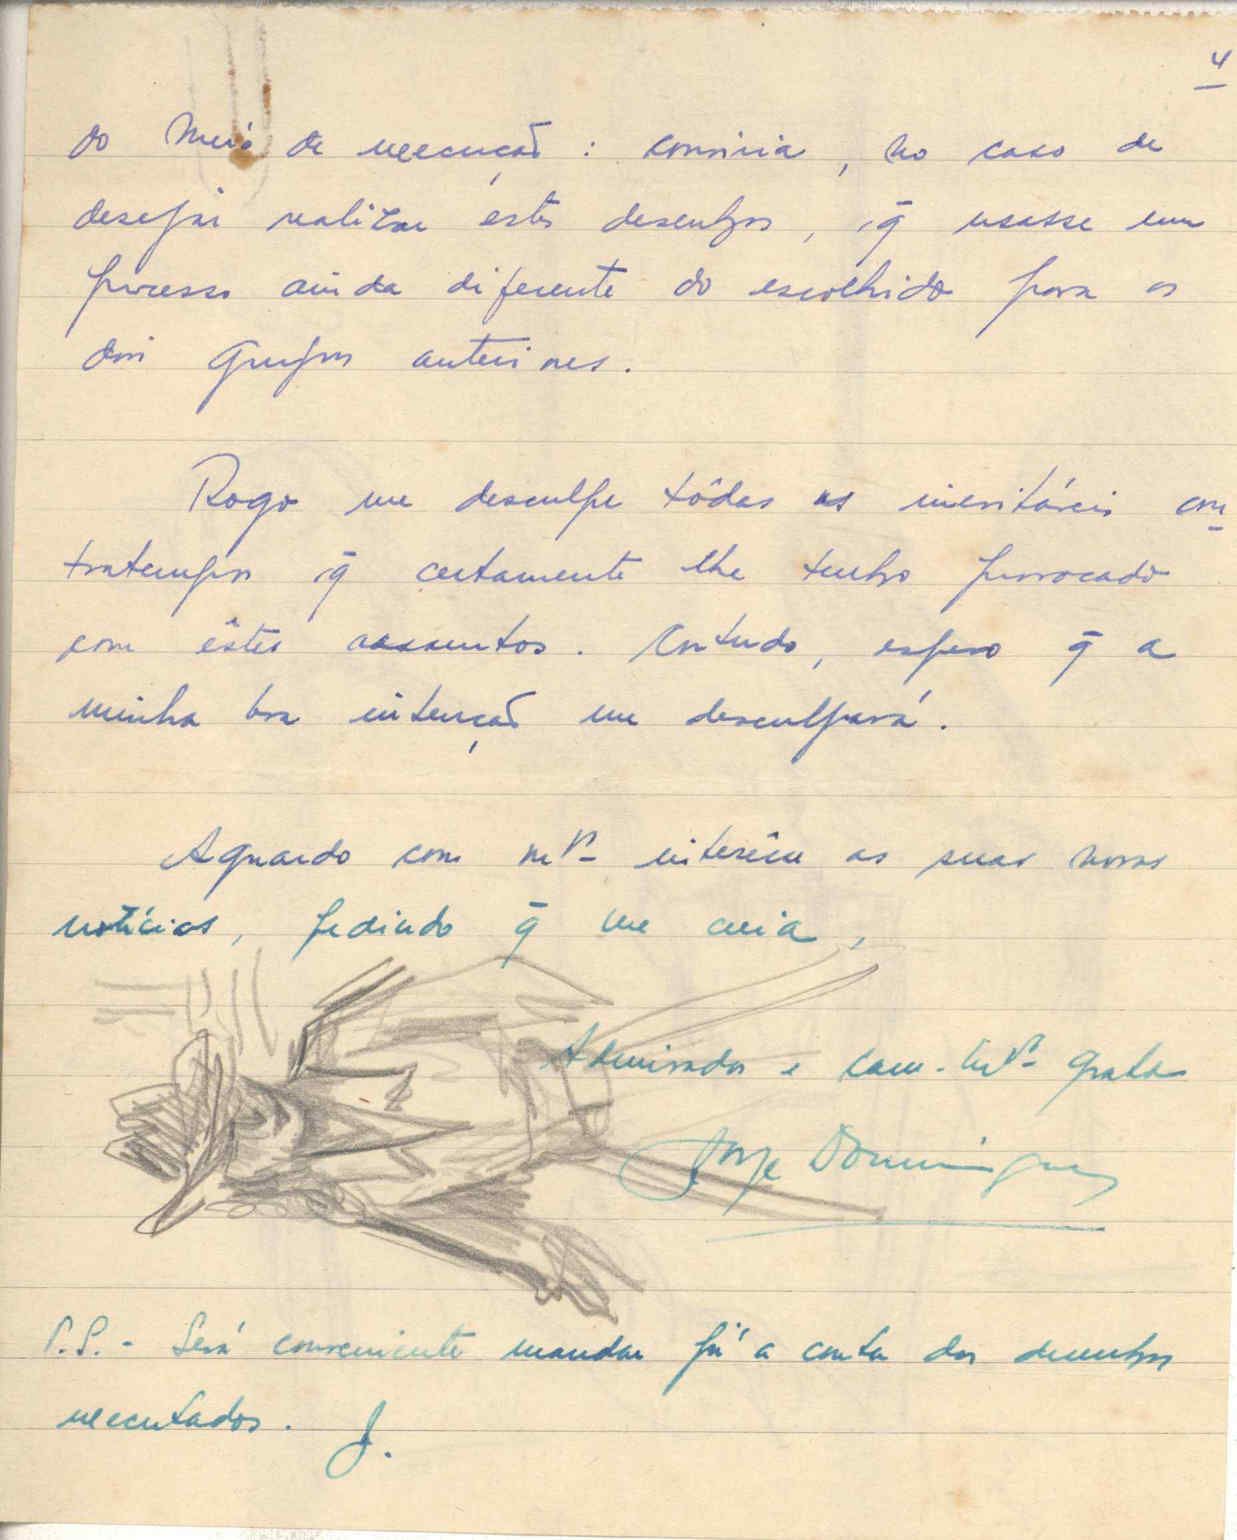 4
do meio de execução : convinha, no caso de
desejar realizar êstes desenhos, q̄ usasse um
processo ainda diferente do escolhido para os
dois grupos anteriores.
Rogo me desculpe tôdas as inevitáveis con-
tratempos q̄ certamente lhe tenho provocado
com êstes assuntos. Contudo, espero q̄ a
minha boa intenção me desculpará.
Aguardo com mtº interêsse as suas novas
notícias, pedindo q̄ me creia,
Admirador e cam. mtº grato
Jorge Domingues
P.S. - Será conveniente mandar já a conta dos desenhos
executados. J.